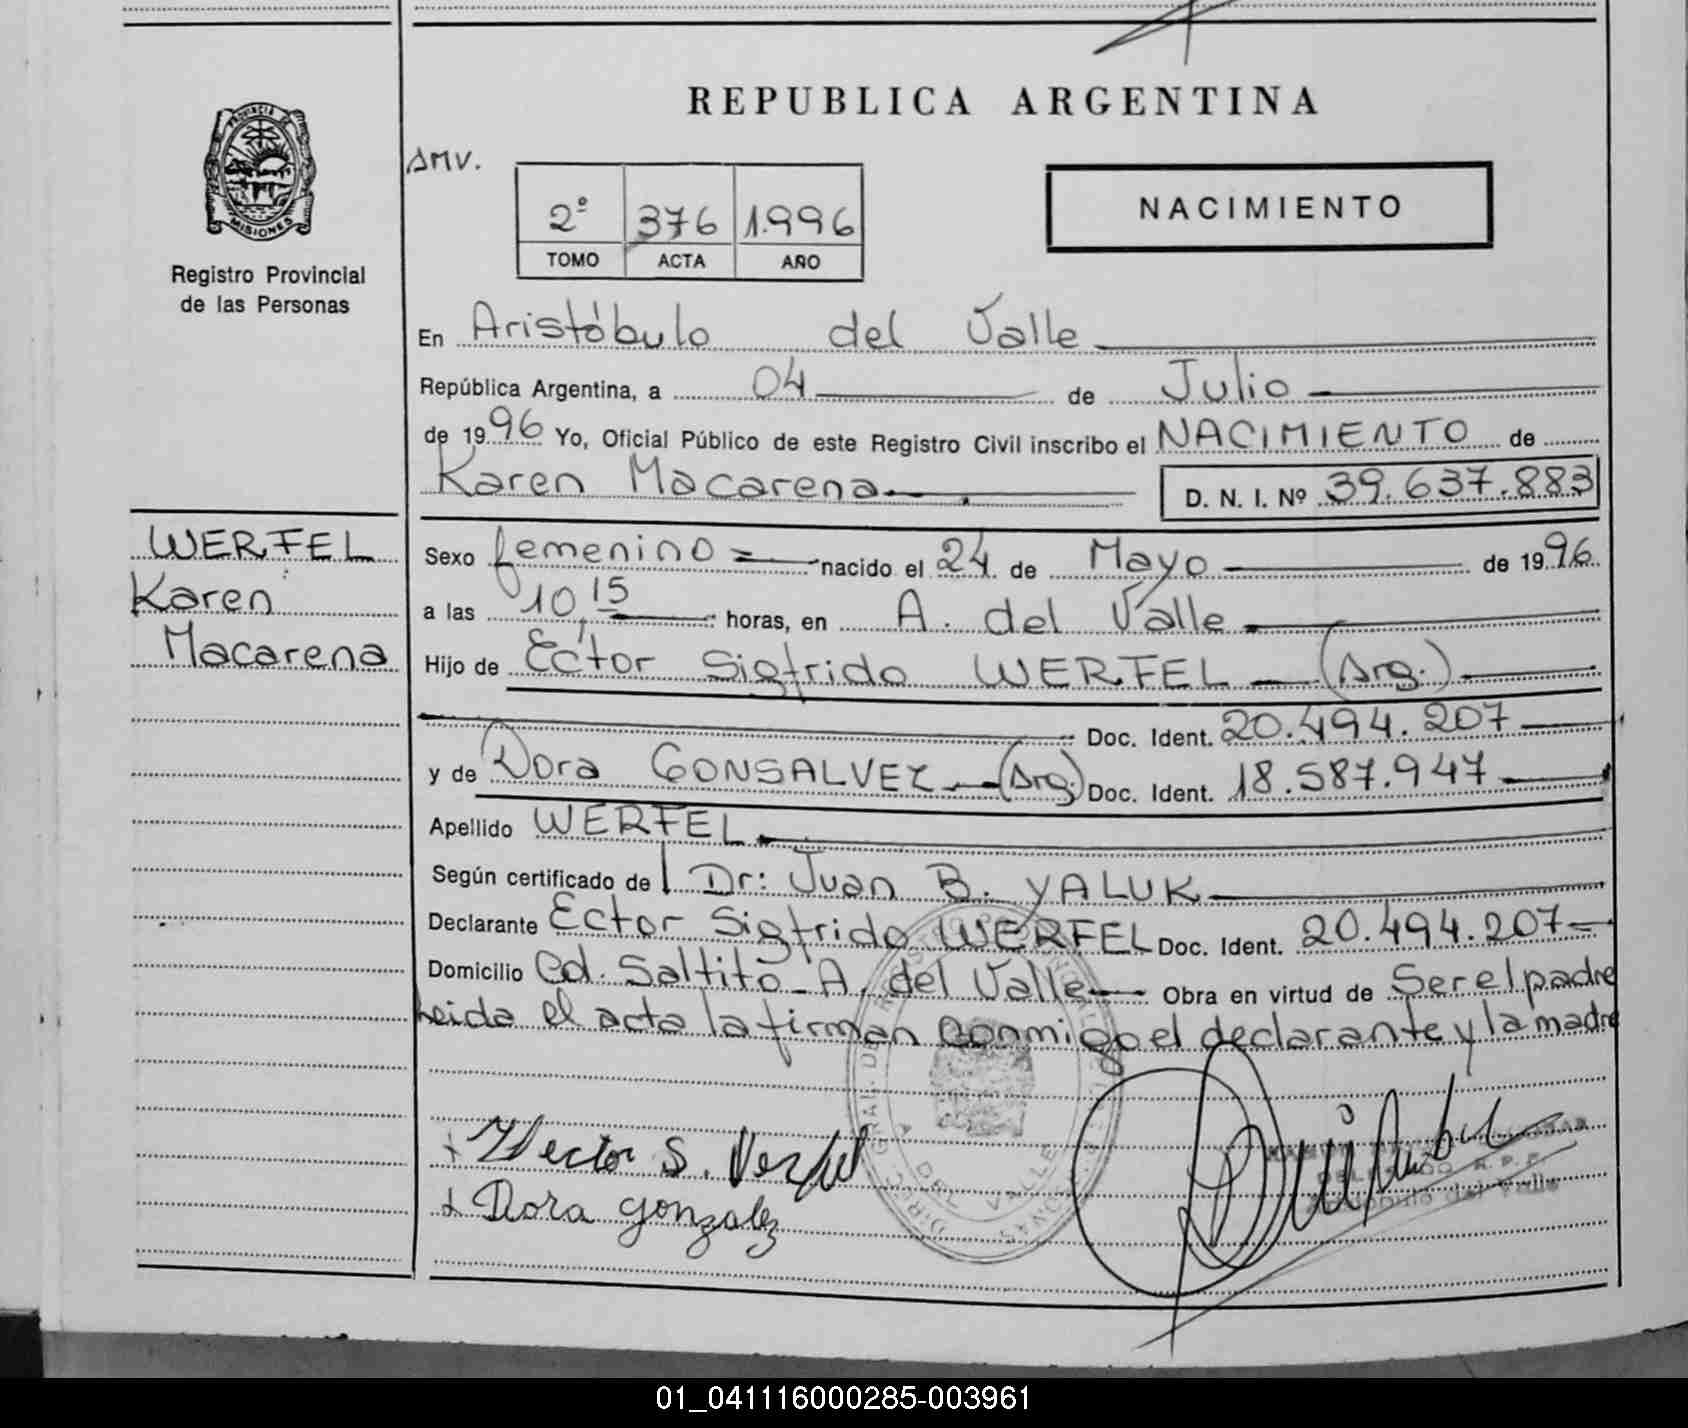 REPUBLICA ARGENTINA
PROVINCIA DE
MISIONES
Registro Provincial
de las Personas
AMV.
2º 376 1.996
TOMO ACTA AÑO
NACIMIENTO
En Aristóbulo del Valle
República Argentina, a 04 de Julio
de 1996 Yo, Oficial Público de este Registro Civil inscribo el NACIMIENTO de
Karen Macarena D. N. I. Nº 39.637.883
WERFEL
Karen
Macarena
Sexo femenino nacido el 24 de Mayo de 1996
a las 10,15 horas, en A. del Valle
Hijo de Ector Sigfrido WERFEL (Arg.)
Doc. Ident. 20.494.207
y de Dora GONSALVEZ (Arg.) Doc. Ident. 18.587.947
Apellido WERFEL
Según certificado de Dr: Juan B. YALUK
Declarante Ector Sigfrido WERFEL Doc. Ident. 20.494.207
Domicilio Cd. Saltito - A. del Valle Obra en virtud de Ser el padre
Leida el acta la firman conmigo el declarante y la madre
Hector S. Verfel
Dora gonzalez
A. DEL VALLE
Aristobulo del Valle
01_041116000285-003961